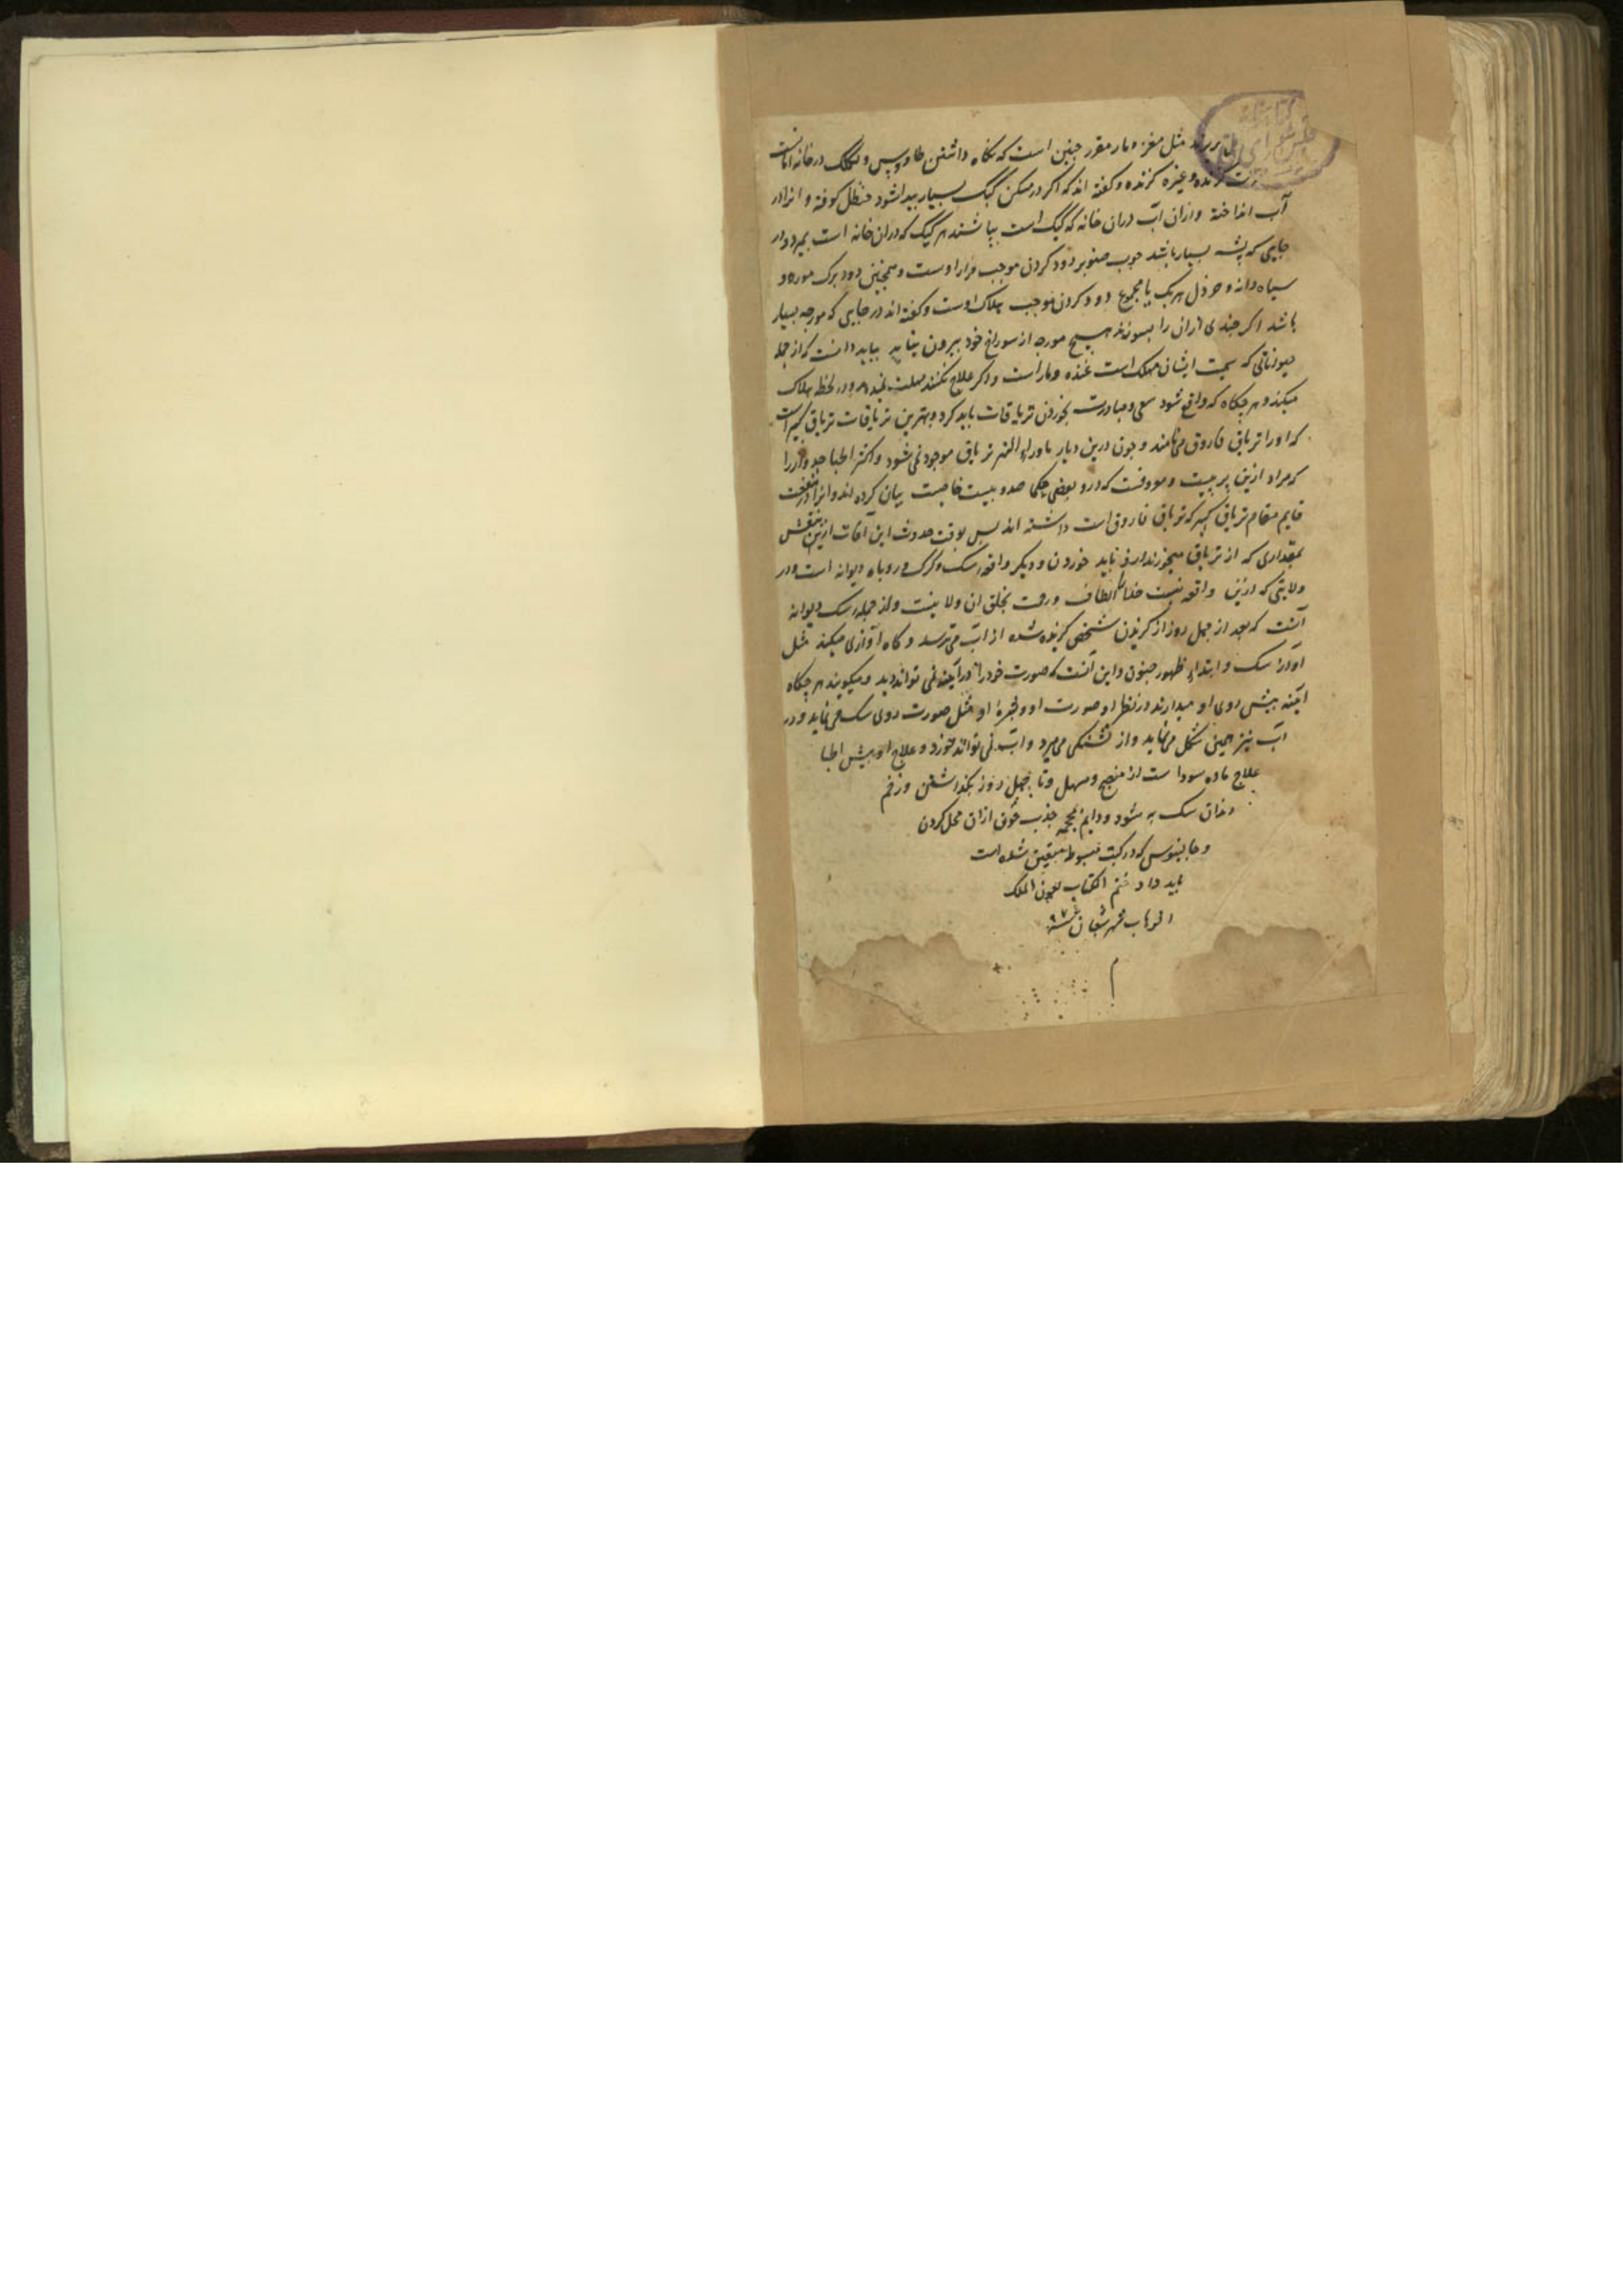 مثل مغز و مار مقرر چنین است که نگاه داشتن طاوس و لکلک در خانه امانست
گزنده و غیره گزنده و گفته اند که اگر در مسکن کیک بسیار پیدا شود حنظل کوفته و انرا در
آب انداخته و ازان آب دران خانه که کیک است بپاشند هر کیک که دران خانه است بمیرد و در
جایی که پشه بسیار باشد چوب صنوبر دود کردن موجب فرار اوست و همچنین دود برک مورد و
سیاه دانه و خردل هر یک یا مجموع دود کردن موجب هلاک اوست و گفته اند در جایی که مورچه بسیار
باشد اکر چندی ازان را بسوزند هیچ مورچه از سوراخ خود بیرون نیاید بباید دانست که از جمله
حیواناتی که سمیت ایشان مهلک است غنده و مار است و اکر علاج نکنند مهلت نمیدهد و در لحظه هلاک
میکند و هر جکاه که واقع شود سعی و مبادرت بخوردن تریاقات باید کرد و بهترین تریاقات تریاق کبیر است
که او را تریاق فاروق می نامند و چون درین دیار ماوراء النهر تریاق موجود نمی شود و اکثر اطبا جدوار را
که مراد ازین پربیست و معروفست که درو بعضی حکما صد و بیست خاصیت بیان کرده اند و انرا در منفعت
قایم مقام تریاق کبیر که تریاق فاروق است داشته اند پس بوقت حدوث این آفات ازین
بمقداری که از تریاق میخورند باید خوردن و دیکر واقعه سک و کرک و روباه دیوانه است و در
ولایتی که ازین واقعه نیست خدا الطاف و رحمت بخلق ان ولا نیست و از جمله سک دیوانه
آنست که بعد از چهل روز از کزیدن شخص کزیده شده از اب می ترسد و کاه آوازی میکند مثل
آواز سک و ابتداء ظهور جنون و این آنست که صورت خود را در آینه نمی تواند دید و میکویند هر جکاه
آینه پیش روی او میدارند در نظر او صورت او مثل صورت روی سک می نماید و در
آب نیز همین شکل می نماید و از تشنکی می میرد و اب نمی تواند خورد و علاج او پیش اطبا
علاج ماده سودا است از منضج و مسهل و تا چهل روز نکذاشتن و زخم
دندان سک به شود و دایم بمحجمه جذب خون ازان محل کردن
و جالینوس که در کتب مبسوط شده است
باید داد ختم الکتاب بعون الملک
الوهاب شهر شعبان